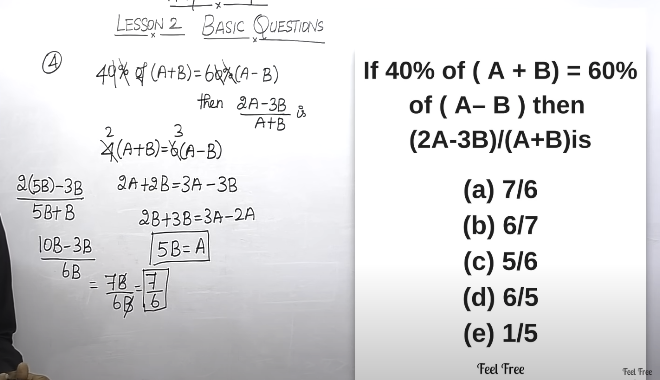 LESSON 2 BASIC QUESTIONS
④ 40% of (A+B)=60%(A-B)
then 2A-3B/A+B is
2 3
4(A+B)=6(A-B)
2A+2B=3A-3B
2B+3B=3A-2A
5B=A
2(5B)-3B
5B+B
10B-3B
6B
= 7B/6B = 7/6
If 40% of ( A + B) = 60%
of ( A– B ) then
(2A-3B)/(A+B)is
(a) 7/6
(b) 6/7
(c) 5/6
(d) 6/5
(e) 1/5
Feel Free
Feel Free